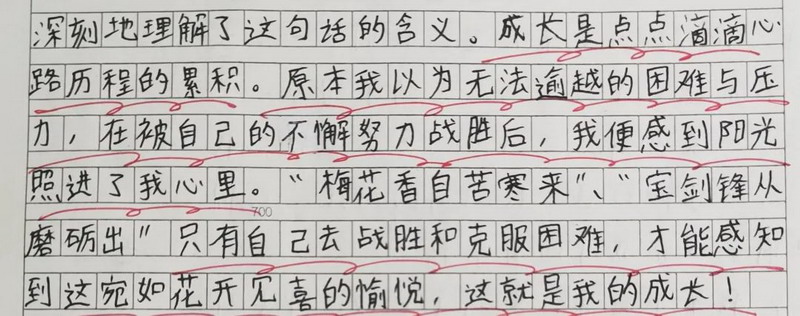 深刻地理解了这句话的含义。成长是点点滴滴心
路历程的累积。原本我以为无法逾越的困难与压
力，在被自己的不懈努力战胜后，我便感到阳光
照进了我心里。“梅花香自苦寒来”、“宝剑锋从
700
磨砺出”只有自己去战胜和克服困难，才能感知
到这宛如花开见喜的愉悦，这就是我的成长！